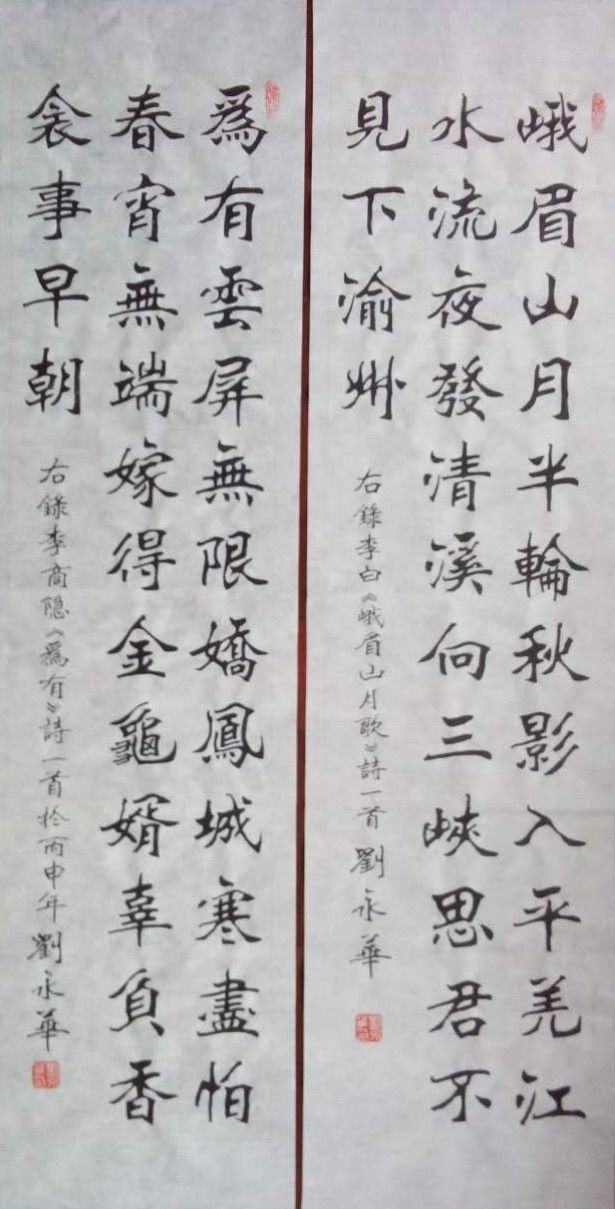 峨眉山月半輪秋影入平羌江
水流夜發清溪向三峽思君不
見下渝州
右錄李白《峨眉山月歌》詩一首 劉永華
為有雲屏無限嬌鳳城寒盡怕
春宵無端嫁得金龜婿辜負香
衾事早朝
右錄李商隱《為有》詩一首於丙申年 劉永華